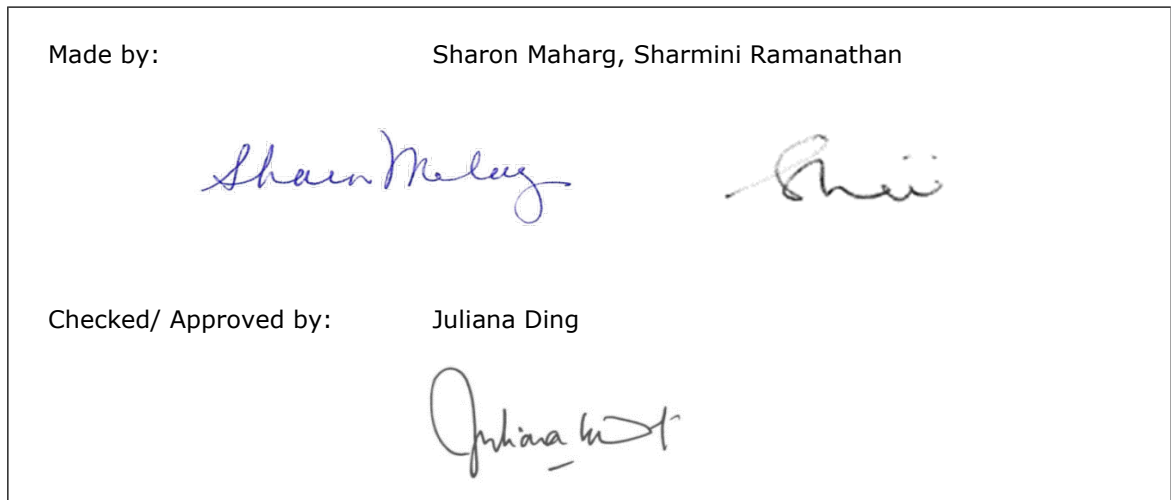 Made by: Sharon Maharg, Sharmini Ramanathan
Sharon Maharg
Checked/ Approved by: Juliana Ding
Juliana